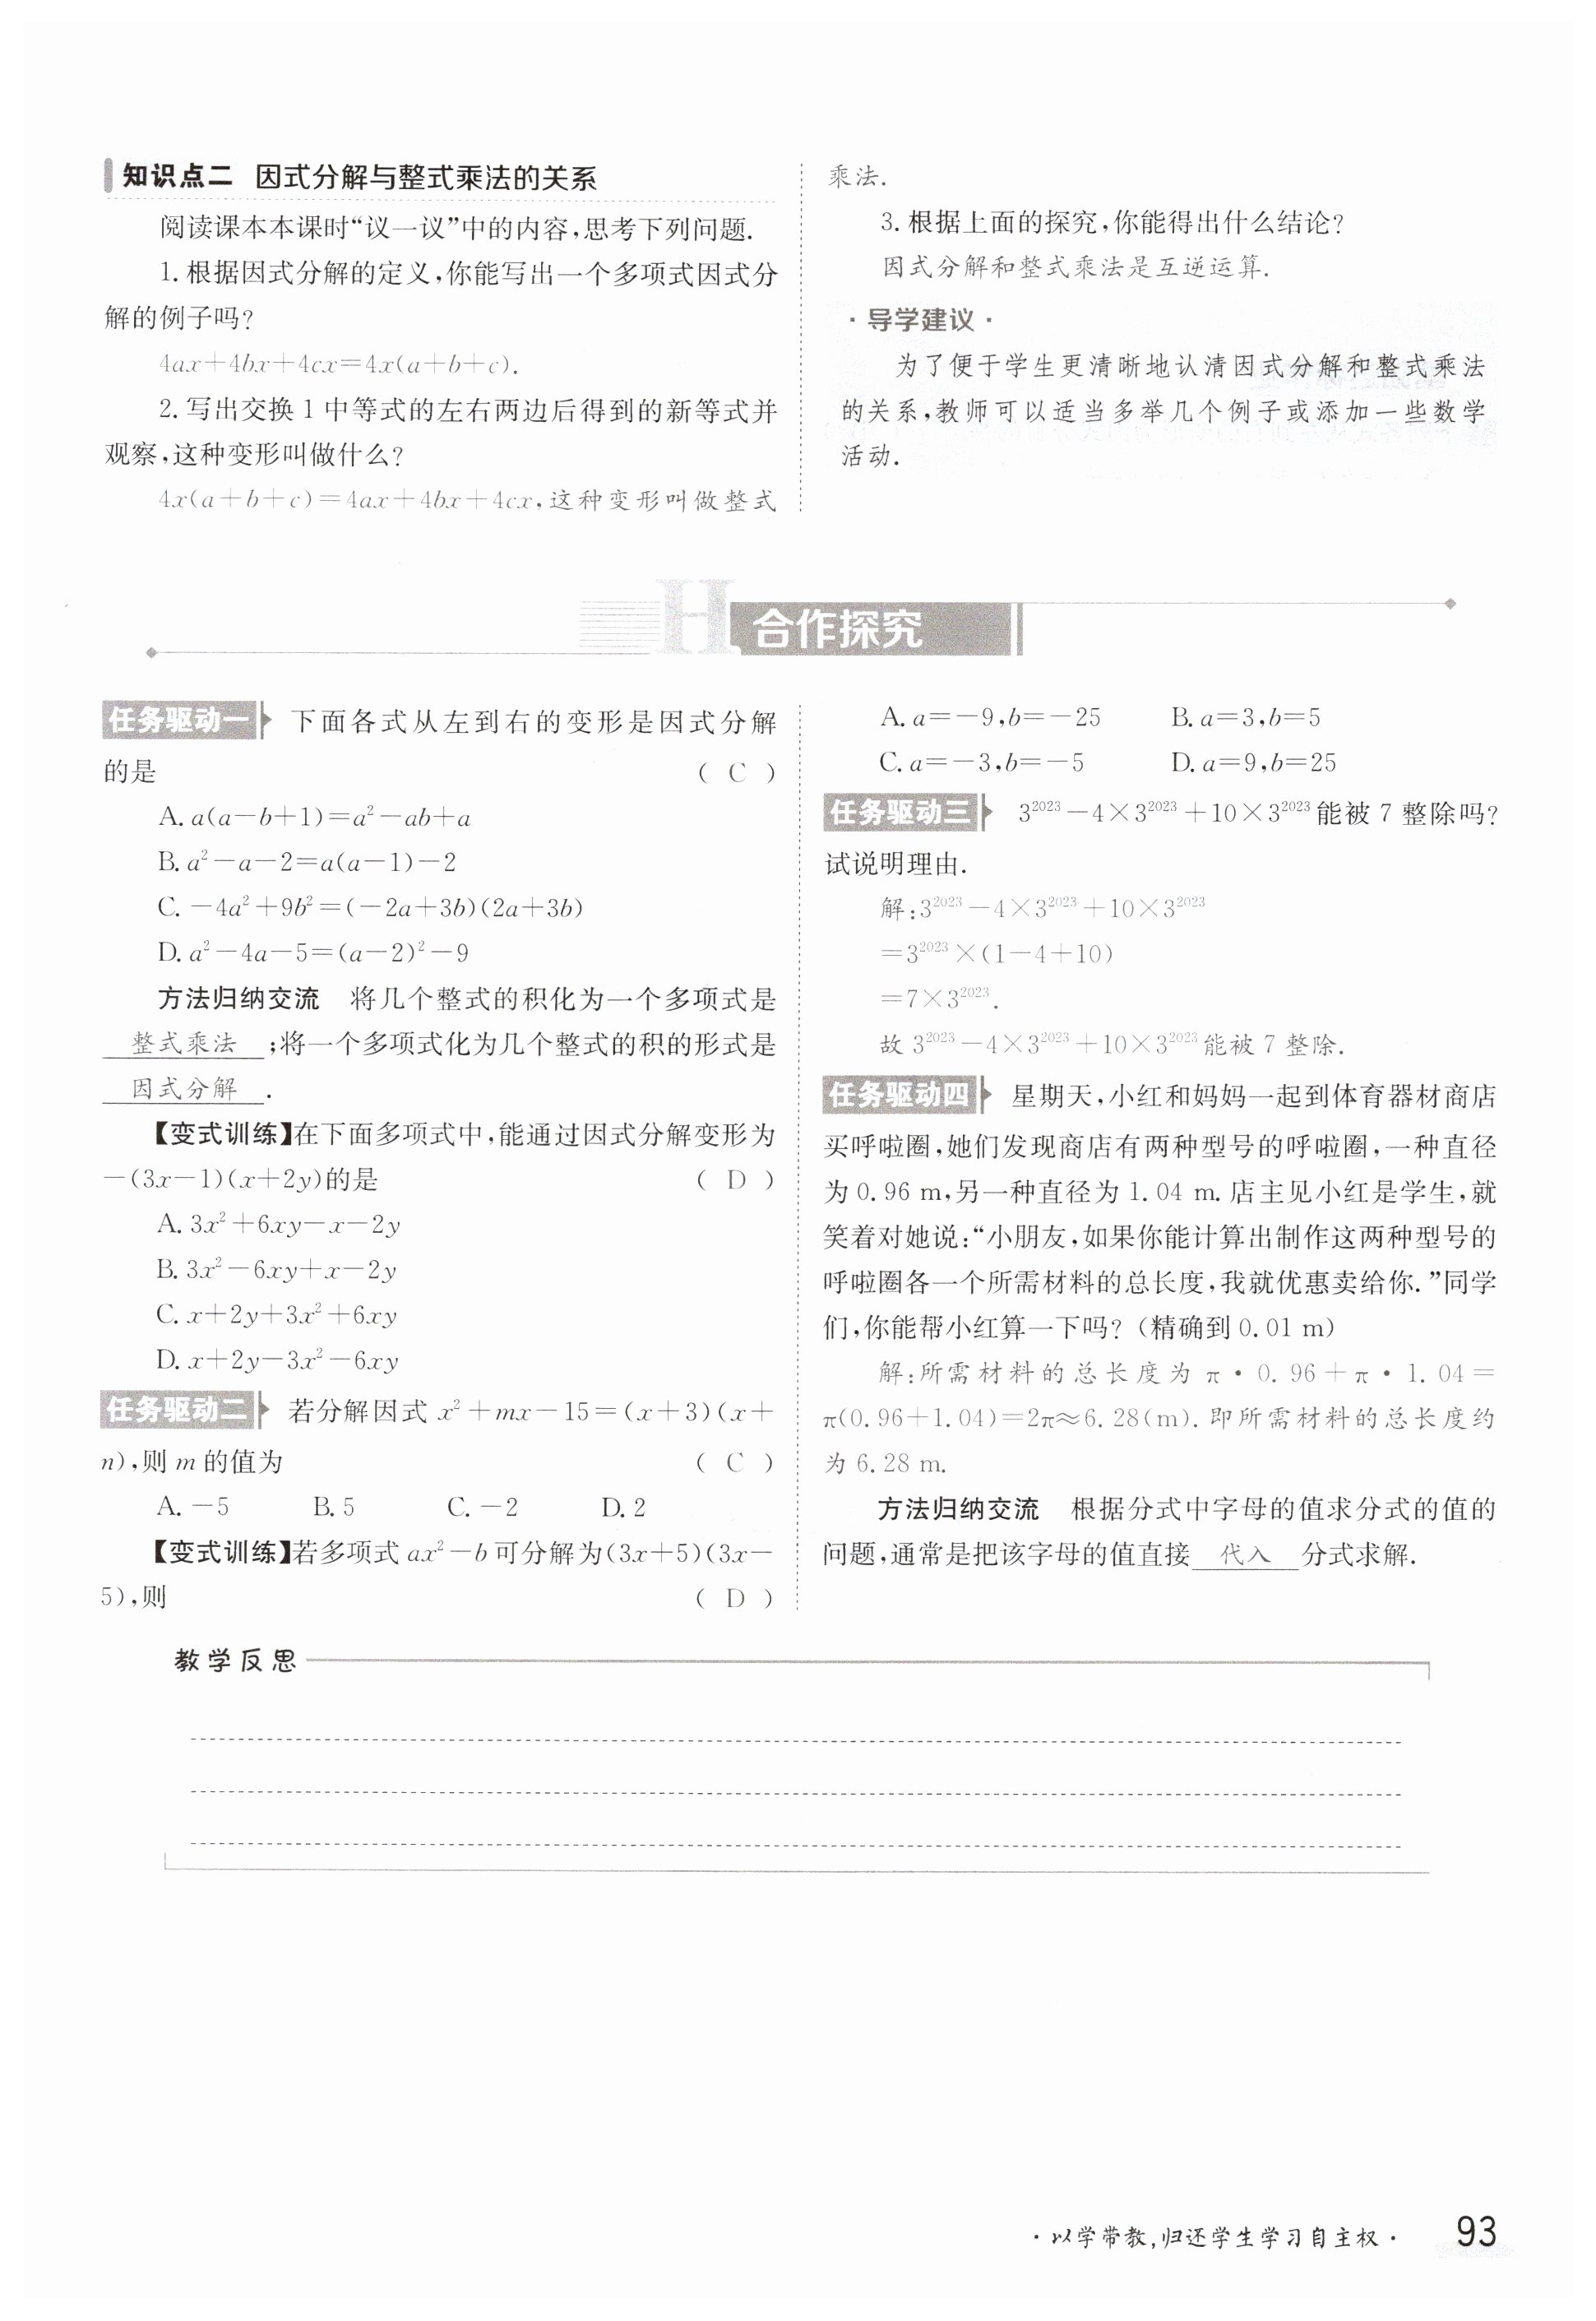 知识点二 因式分解与整式乘法的关系
阅读课本本课时“议一议”中的内容,思考下列问题.
1. 根据因式分解的定义,你能写出一个多项式因式分
解的例子吗?
4ax+4bx+4cx=4x(a+b+c).
2. 写出交换 1 中等式的左右两边后得到的新等式并
观察,这种变形叫做什么?
4x(a+b+c)=4ax+4bx+4cx,这种变形叫做整式
乘法.
3. 根据上面的探究,你能得出什么结论?
因式分解和整式乘法是互逆运算.
·导学建议·
为了便于学生更清晰地认清因式分解和整式乘法
的关系,教师可以适当多举几个例子或添加一些数学
活动.
H 合作探究
任务驱动一 下面各式从左到右的变形是因式分解
的是 ( C )
A. a(a-b+1)=a²-ab+a
B. a²-a-2=a(a-1)-2
C. -4a²+9b²=(-2a+3b)(2a+3b)
D. a²-4a-5=(a-2)²-9
方法归纳交流 将几个整式的积化为一个多项式是
整式乘法 ;将一个多项式化为几个整式的积的形式是
因式分解 .
【变式训练】在下面多项式中,能通过因式分解变形为
-(3x-1)(x+2y)的是 ( D )
A. 3x²+6xy-x-2y
B. 3x²-6xy+x-2y
C. x+2y+3x²+6xy
D. x+2y-3x²-6xy
任务驱动二 若分解因式 x²+mx-15=(x+3)(x+
n),则 m 的值为 ( C )
A. -5 B. 5 C. -2 D. 2
【变式训练】若多项式 ax²-b 可分解为(3x+5)(3x-
5),则 ( D )
A. a=-9,b=-25 B. a=3,b=5
C. a=-3,b=-5 D. a=9,b=25
任务驱动三 3²⁰²³-4×3²⁰²³+10×3²⁰²³能被 7 整除吗?
试说明理由.
解:3²⁰²³-4×3²⁰²³+10×3²⁰²³
=3²⁰²³×(1-4+10)
=7×3²⁰²³.
故 3²⁰²³-4×3²⁰²³+10×3²⁰²³能被 7 整除.
任务驱动四 星期天,小红和妈妈一起到体育器材商店
买呼啦圈,她们发现商店有两种型号的呼啦圈,一种直径
为 0.96 m,另一种直径为 1.04 m. 店主见小红是学生,就
笑着对她说:“小朋友,如果你能计算出制作这两种型号的
呼啦圈各一个所需材料的总长度,我就优惠卖给你.”同学
们,你能帮小红算一下吗?(精确到 0.01 m)
解:所需材料的总长度为 π·0.96+π·1.04=
π(0.96+1.04)=2π≈6.28(m). 即所需材料的总长度约
为 6.28 m.
方法归纳交流 根据分式中字母的值求分式的值的
问题,通常是把该字母的值直接 代入 分式求解.
教学反思
·以学带教,归还学生学习自主权· 93